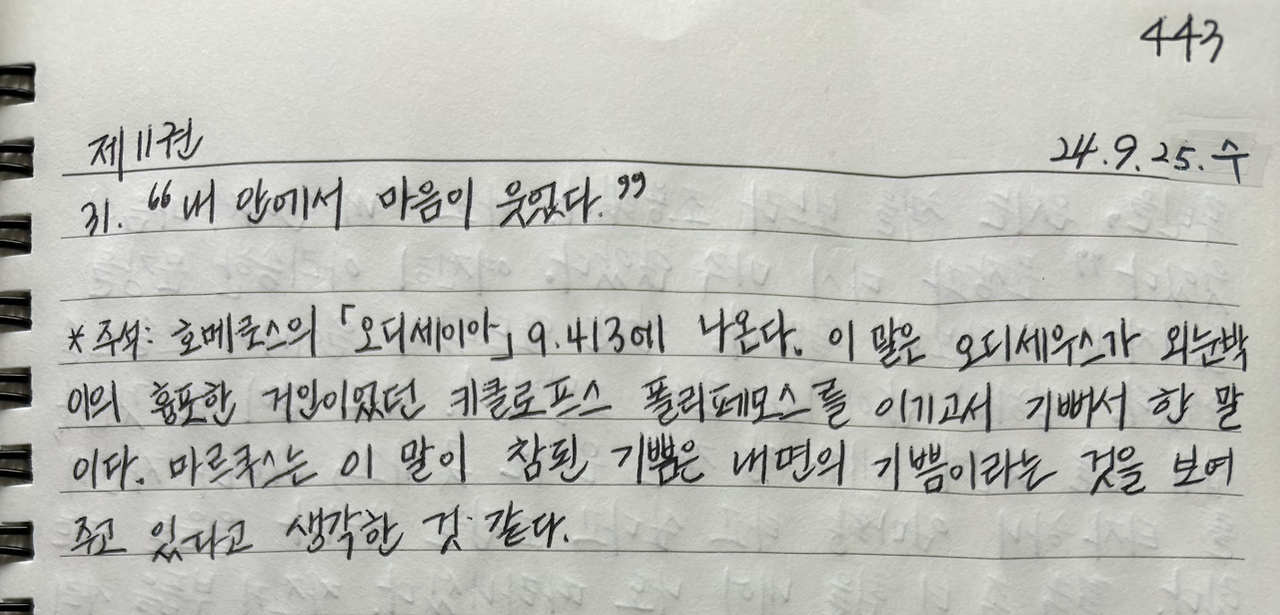 443
제11권 24.9.25.수
31. “내 안에서 마음이 웃었다.”
*주석: 호메로스의 「오디세이아」 9.413에 나온다. 이 말은 오디세우스가 외눈박
이의 흉포한 거인이었던 키클로프스 폴리페모스를 이기고서 기뻐서 한 말
이다. 마르쿠스는 이 말이 참된 기쁨은 내면의 기쁨이라는 것을 보여
주고 있다고 생각한 것 같다.